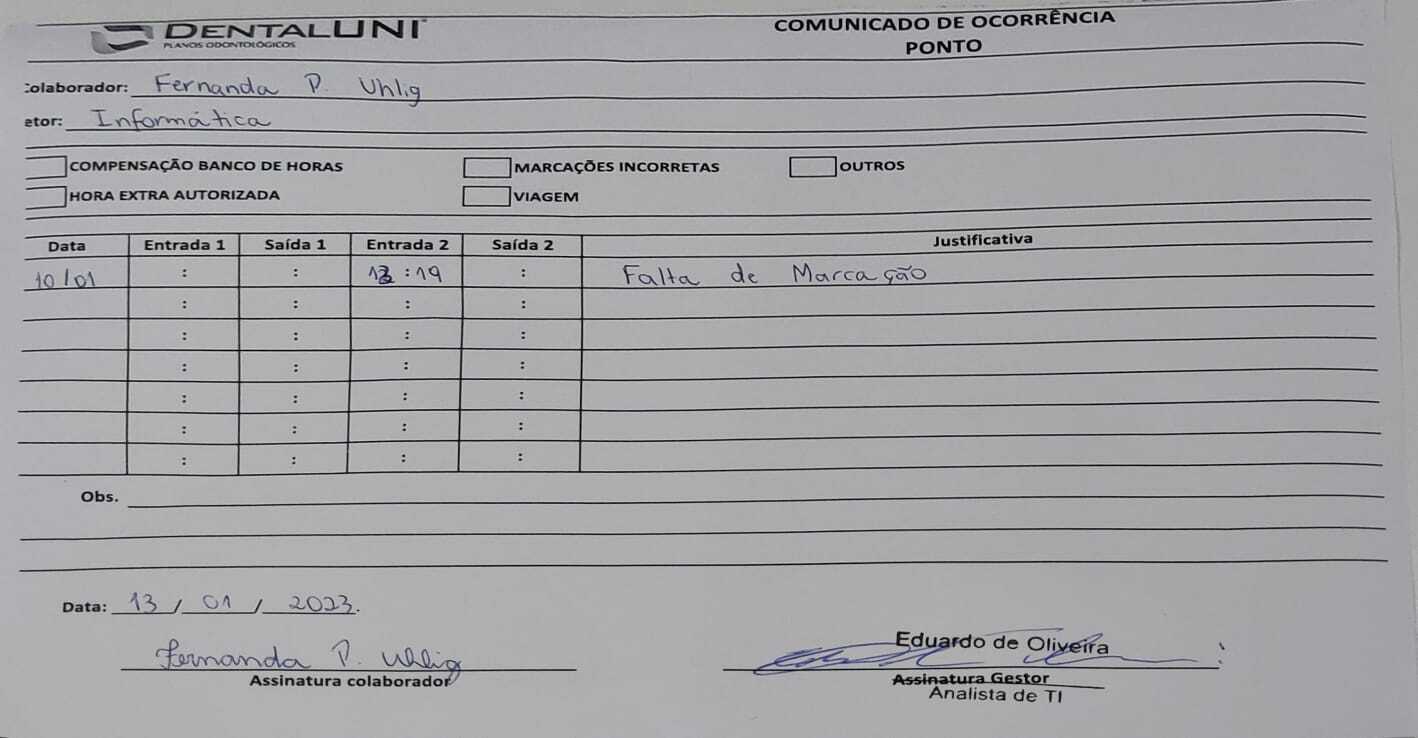 DENTALUNI
PLANOS ODONTOLÓGICOS
COMUNICADO DE OCORRÊNCIA
PONTO
Colaborador: Fernanda P. Uhlig
etor: Informática
COMPENSAÇÃO BANCO DE HORAS MARCAÇÕES INCORRETAS OUTROS
HORA EXTRA AUTORIZADA VIAGEM
Data Entrada 1 Saída 1 Entrada 2 Saída 2 Justificativa
10/01 : : 13:19 : Falta de Marcação
: : : :
: : : :
: : : :
: : : :
: : : :
: : : :
Obs.
Data: 13 / 01 / 2023.
Fernanda P. Uhlig
Assinatura colaborador
Eduardo de Oliveira
Assinatura Gestor
Analista de TI